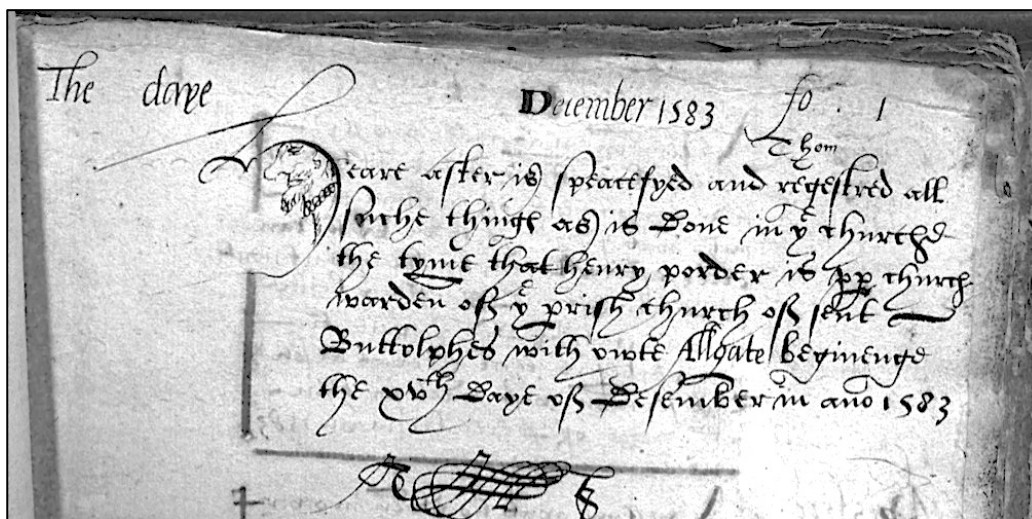 The daye December 1583 fo. 1
Thom
Heare after is speacefyed and regestred all
suche thinge as is done in yͤ churche
the tyme that henry porder is pp church
warden off yͤ prish church off sent
Buttolphes with owte Allgate beginenge
the xvth daye off desember in ano 1583